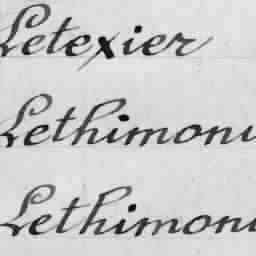 Letexier
Lethimoni
Lethimoni